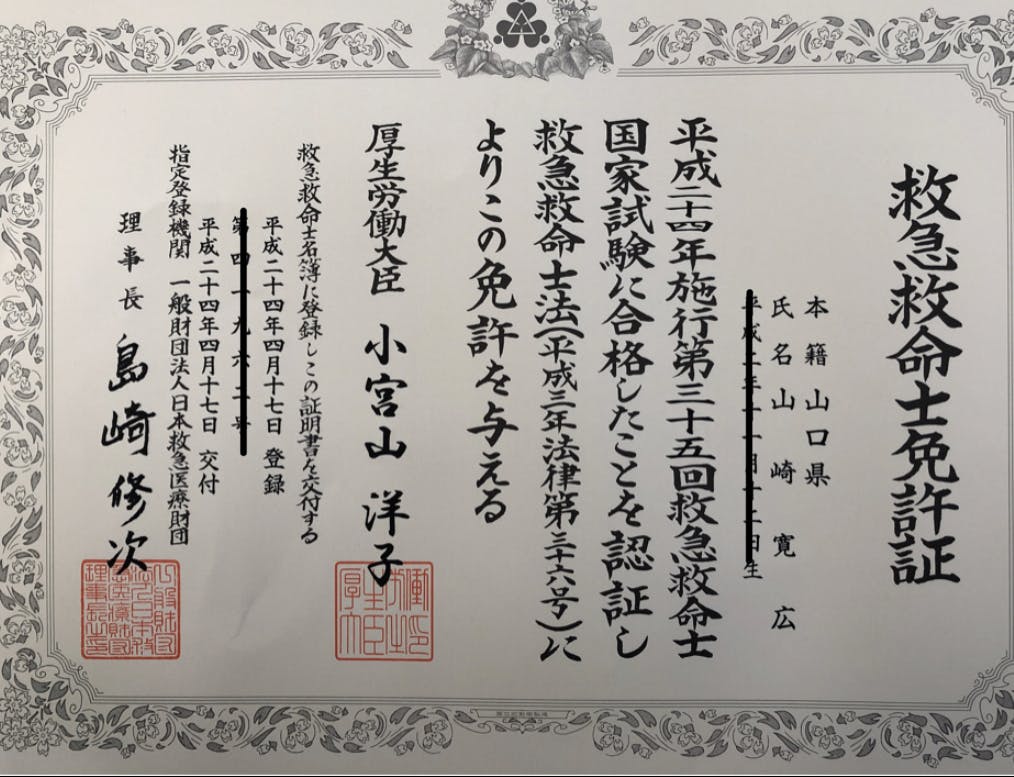 救急救命士免許証
本籍 山口県
氏名 山崎 寛広
生
平成二十四年施行第三十五回救急救命士
国家試験に合格したことを認証し
救急救命士法(平成三年法律第三十六号)に
よりこの免許を与える
厚生労働大臣 小宮山 洋子
救急救命士名簿に登録しこの証明書を交付する
平成二十四年四月十七日 登録
平成二十四年四月十七日 交付
指定登録機関 一般財団法人日本救急医療財団
理事長 島崎 修次